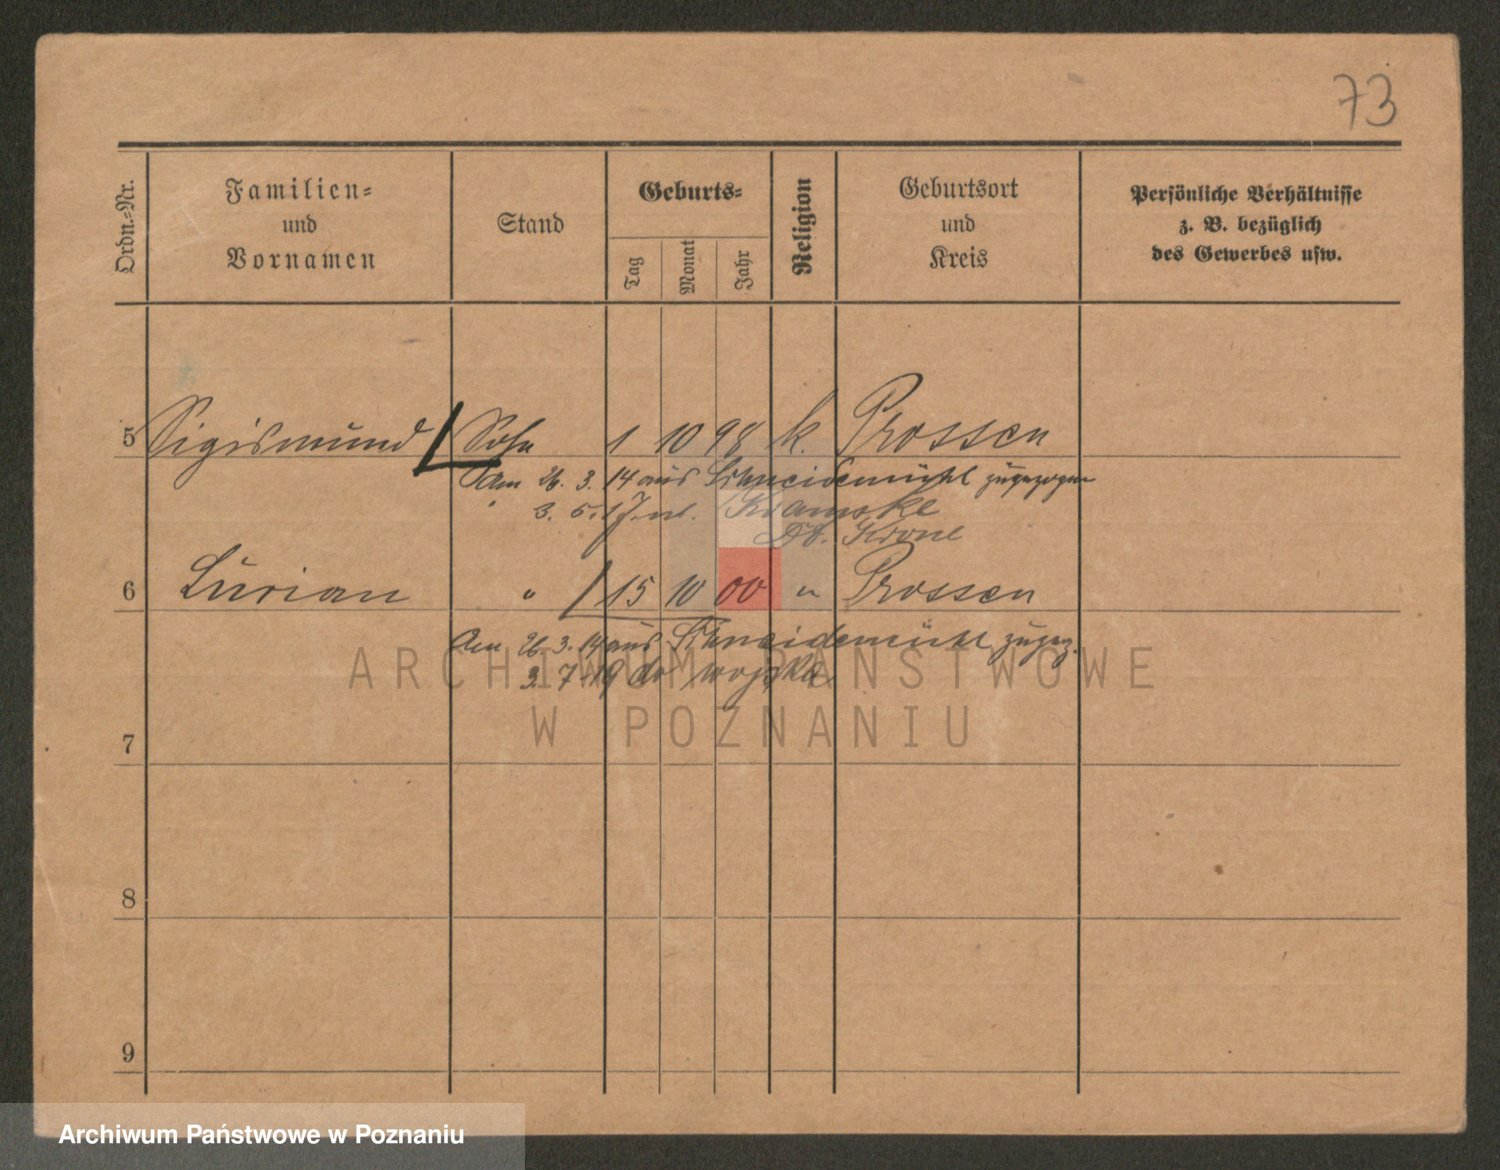 73
Ordn.-Nr.
Familien-
und
Vornamen
Stand
Geburts-
Tag
Monat
Jahr
Religion
Geburtsort
und
Kreis
Persönliche Verhältnisse
z. B. bezüglich
des Gewerbes usw.
5 Sigismund Sohn 1 10 98 k. Prossen
Am 26. 3. 14 aus Schneidemühl zugezogen
" 3. 5. 17 n.
Dt. Krone
6 Lucian " 15 10 00 " Prossen
Am 26. 3. 14 aus Schneidemühl zugez.
3. 7. 19 do wojska
ARCHIWUM PAŃSTWOWE
W POZNANIU
7
8
9
Archiwum Państwowe w Poznaniu